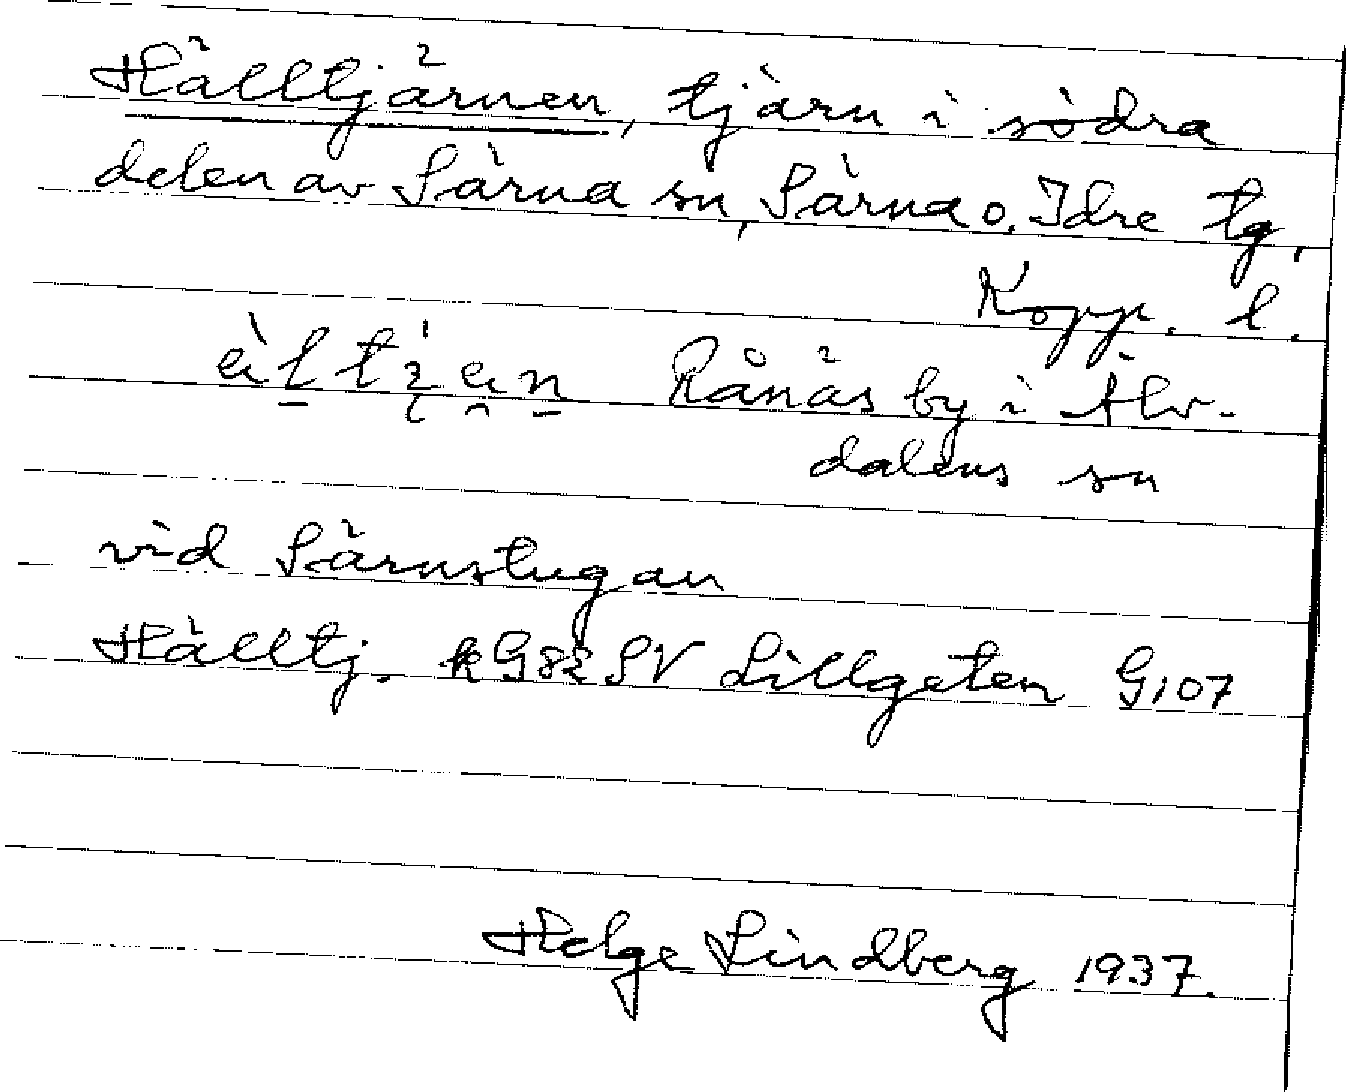 Hälltjärnen, tjärn i södra
delen av Särna sn, Särna o. Idre tg,
Kopp. l.
Rånäs by i Älv-
dalens sn
vid Särnstugan
Hälltj. kG82SV Lillgeten G,07
Helge Lindberg 1937.